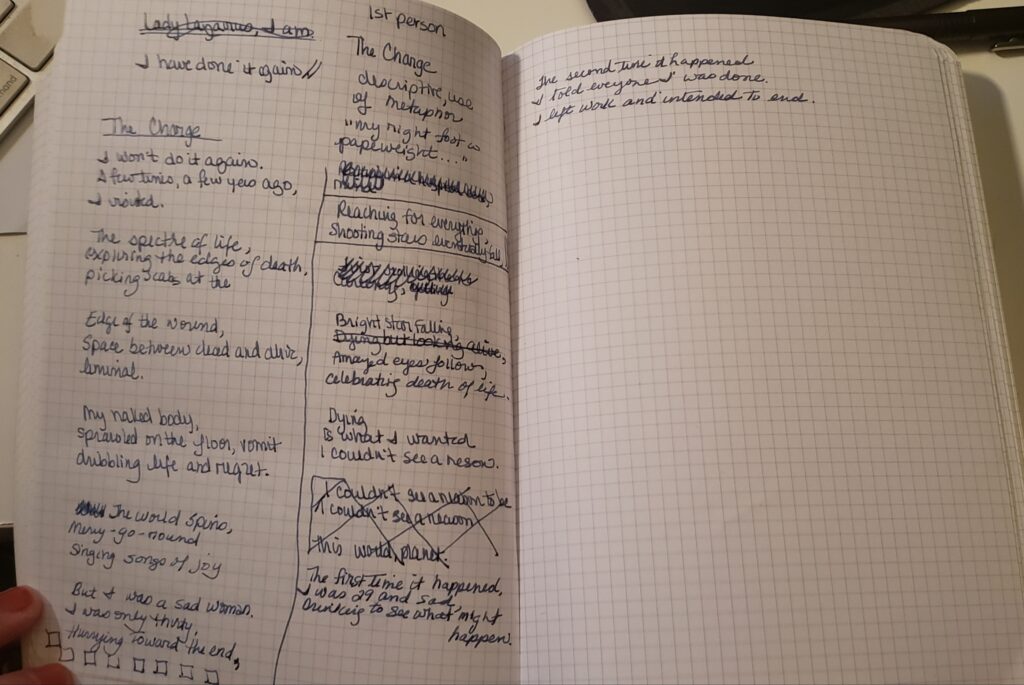 Lady Lazarus, I am
I have done it again
The Change
I won't do it again.
A few times, a few years ago,
I
The spectre of life,
exploring the edges of death,
picking scabs at the
Edge of the wound,
Space between dead and alive,
liminal.
My naked body,
sprawled on the floor, vomit
dribbling life and regret.
The world spins,
Merry-go-round
Singing songs of joy
But I was a sad woman.
I was only thirty,
Hurrying toward the end,
1st person
The Change
descriptive, use
of metaphor
"my right foot a
paperweight..."
Reaching for everything,
Shooting stars eventually fall,
Bright star falling,
Dying but looking alive,
Amazed eyes follow,
celebrating death of life.
Dying
is what I wanted
I couldn't see a reason.
I couldn't see a reason to be
I couldn't see a reason
this world, planet.
The first time it happened,
I was 29 and sad,
drinking to see what might
happen.
The second time it happened
I told everyone I was done.
I left work and intended to end.